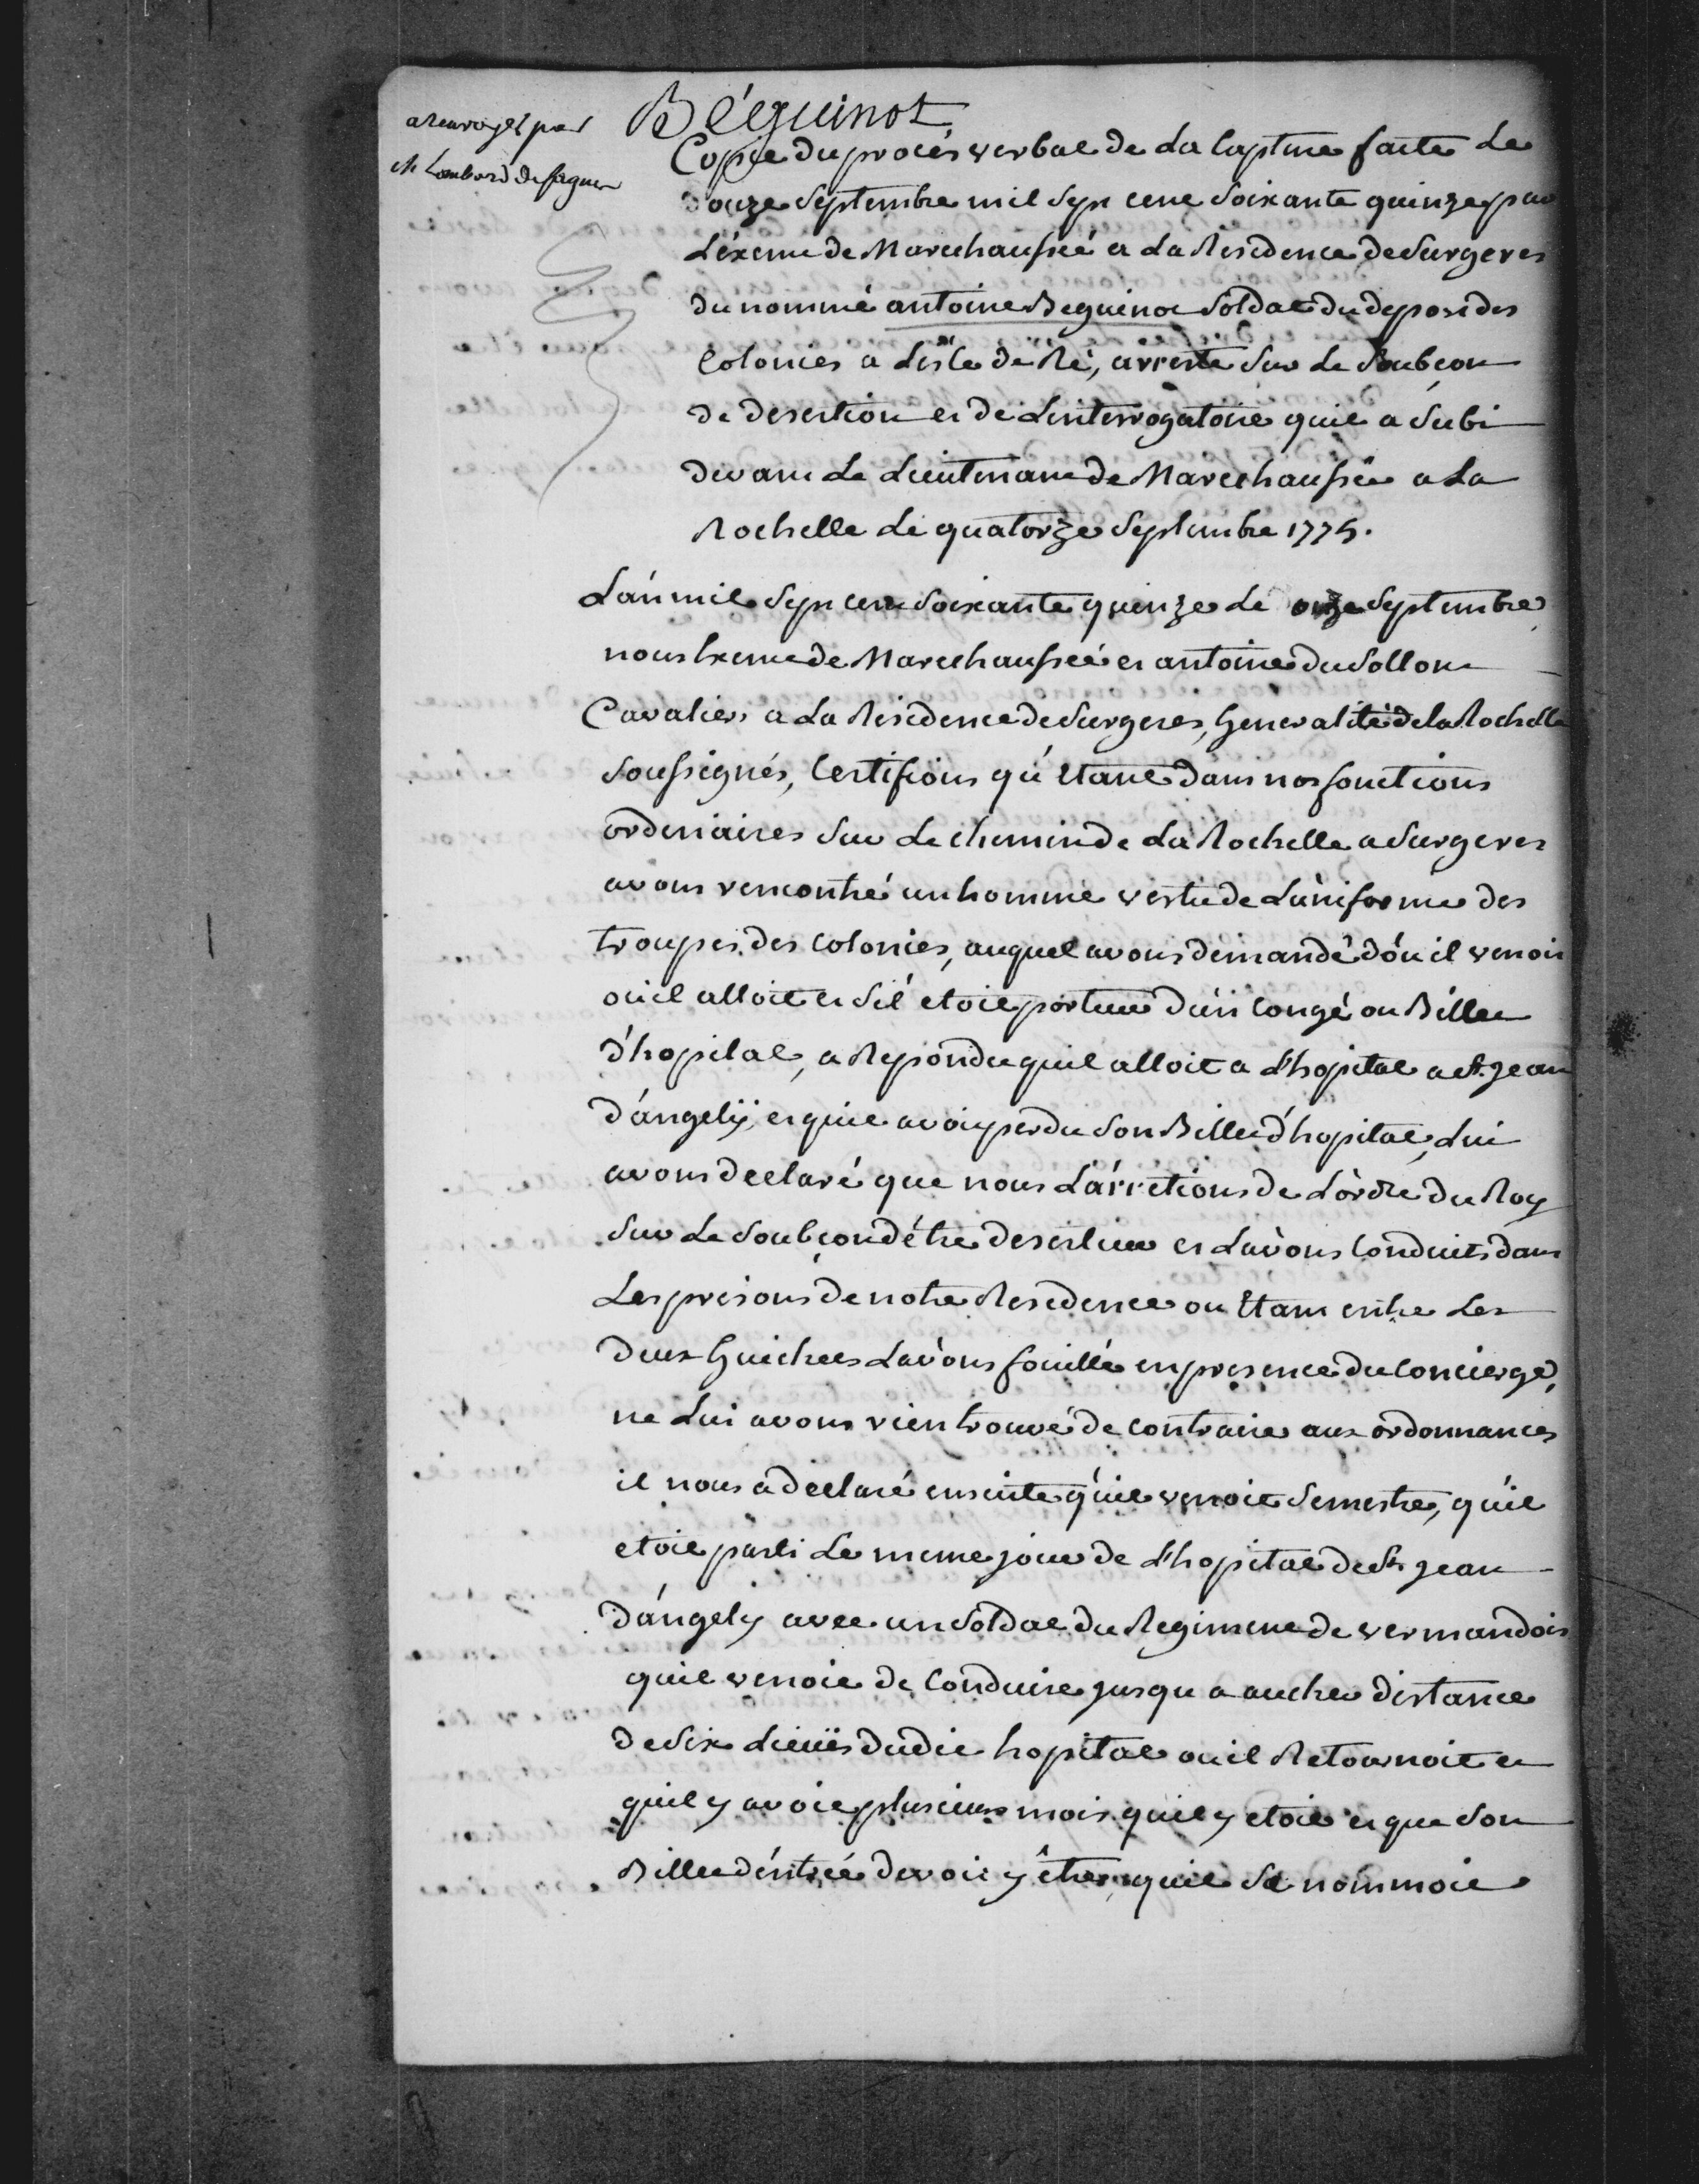 Béguinot
a renvoyer par
M Lombard de
Copie du procès verbal de La Capture faite Le
onze Septembre mil Sept cent Soixante quinze par
L'éxempt de Marechaussée a La Residence de Surgeres
du nommé antoine Beguinot Soldat du depost des
Colonies a L'isle de Ré, arresté Sur Le Soubçon
de desertion et de L'interrogatoire qu'il a Subi
devant Le Lieutenant de Marechaussée a La
Rochelle Le quatorze Septembre 1775.
L'an mil Sept cent Soixante quinze Le onze Septembre
nous Exempt de Marechaussée et antoine
Cavaliers a La Residence de Surgeres, Generalité de la Rochelle
Soussignés, Certifions qu'Etant dans nos fonctions
ordinaires Sur Le chemin de La Rochelle a Surgeres
avons rencontré un homme vestu de L'uniforme des
troupes des Colonies, auquel avons demandé d'ou il venoit
ou il alloit et S'il etoit porteur d'un Congé ou Billet
d'hopital, a Repondu quil alloit a L'hopital a St. Jean
d'angelÿ, et quil avoit perdu Son Billet d'hopital, Lui
avons declaré que nous L'arrétions de L'ordre du Roy
Sur Le Soubçon d'étre deserteur et L'avons Conduits dans
Les prisons de notre Residence ou Etant entre Les
deux Guichets L'avons fouillé en presence du Concierge,
ne Lui avons rien trouvé de contraire aux ordonnances
il nous a declaré ensuite qu'il venoit Semestre, qu'il
etoit parti Le meme jour de L'hopital de St. Jean
d'angely avec un Soldat du Regiment de vermandois
quil venoit de Conduire jusqu a distance
de Six Lieuës dudit hopital ou il Retournoit et
quil y avoit plusieurs mois quil y etoit et que Son
Billet d'entrée devoit y être, quil Se nommoit